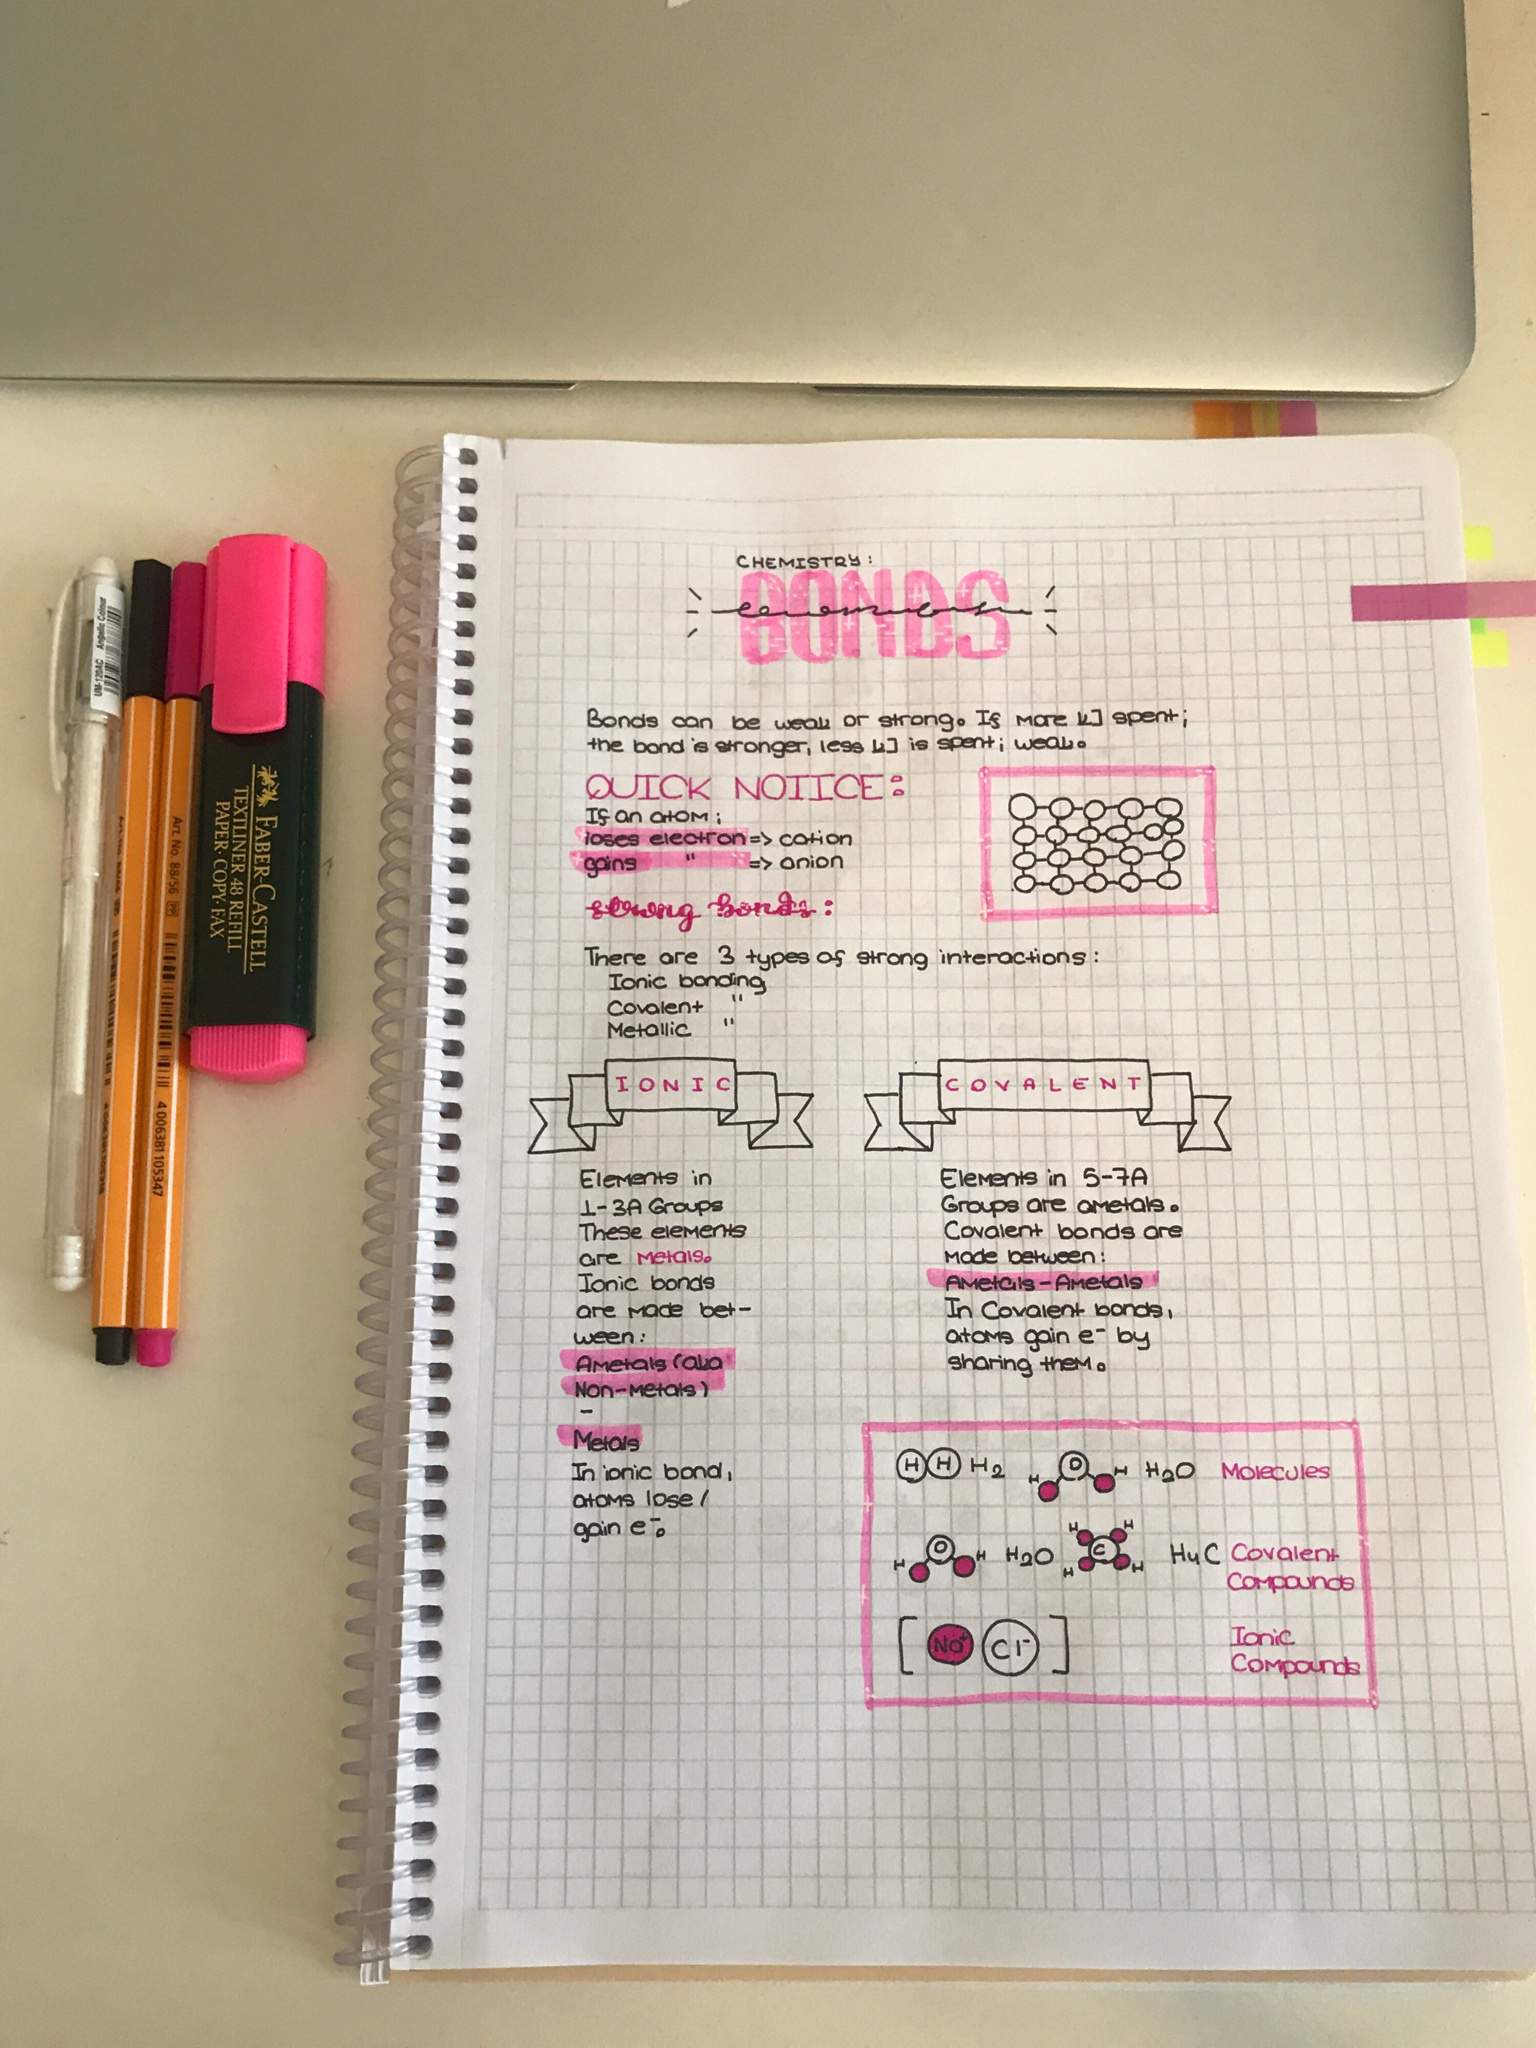 CHEMISTRY:
BONDS
Bonds can be weak or strong. If more kJ spent;
the bond is stronger, less kJ is spent; weak.
QUICK NOTICE:
If an atom;
loses electron => cation
gains " => anion
strong bonds:
There are 3 types of strong interactions:
Ionic bonding
Covalent "
Metallic "
IONIC
Elements in
1-3A Groups
These elements
are Metals.
Ionic bonds
are made bet-
ween:
Ametals (aka
Non-metals)
-
Metals
In ionic bond,
atoms lose/
gain e-.
COVALENT
Elements in 5-7A
Groups are ametals.
Covalent bonds are
made between:
Ametals-Ametals
In Covalent bonds,
atoms gain e- by
sharing them.
H H H2 H O H H2O Molecules
H O H H2O H H C H H H4C Covalent
Compounds
[Na+ Cl-] Ionic
Compounds
UM-120AC Angelic Colour
Art. No. 88/56
4 006381 105347
FABER-CASTELL
TEXTLINER 48 REFILL
PAPER·COPY·FAX